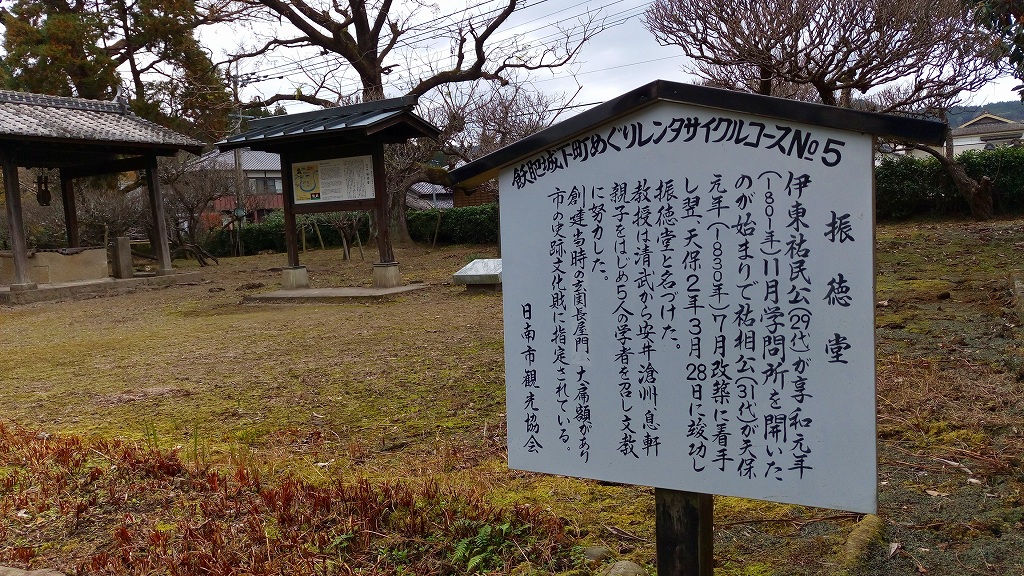 飫肥城下町めぐりレンタサイクルコースNo5
振徳堂
伊東祐民公(29代)が享和元年
(1801年)11月学問所を開いた
のが始まりで祐相公(31代)が天保
元年(1830年)7月改築に着手
し翌、天保2年3月28日に竣功し
振徳堂と名づけた。
教授は清武から安井滄洲、息軒
親子をはじめ5人の学者を召し文教
に努力した。
創建当時の玄関長屋門、大扁額があり
市の史跡文化財に指定されている。
日南市観光協会